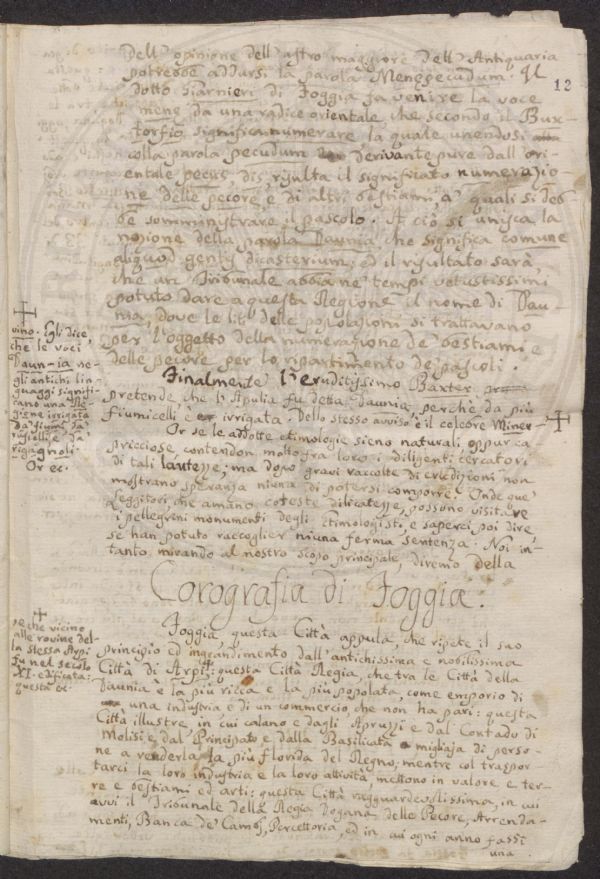 12
Dell' opinione dell' astro maggiore dell' Antiquaria
potrebbe addursi la parola Menepecudum. Il
dotto Giarnieri di Foggia fa venire la voce
mene da una radice orientale che secondo il Bux-
torfio significa numerare la quale unendosi
colla parola pecudum derivante pure dall' ori-
entale pecus, risulta il significato numerazio-
ne delle pecore, e di altri bestiami, a' quali si deb-
be somministrare il pascolo. A ciò si unisca la
nozione della parola Daunia, che significa comune
aliquod gentis dicasterium; ed il risultato sarà,
che un Tribunale abbia ne' tempi vetustissimi
potuto dare a questa Regione il nome di Dau-
nia, dove le liti delle popolazioni si trattavano
per l'oggetto della numerazione de' bestiami e
delle pecore per lo ripartimento de' pascoli.
Finalmente l'eruditissimo Baxter
pretende che l'Apulia fu detta Daunia, perchè da più
fiumicelli è irrigata. Dello stesso avviso è il celebre Miner-
vino. Egli dice,
che le voci
Daun-ia ne-
gli antichi lin-
guaggi signifi-
cano una Re-
gione irrigata
da fiumi, da
ruscelli, e da
rigagnoli.
Or ec.
Or se le addotte etimologie sieno naturali oppur ca-
pricciose, contendon molto fra loro i diligenti cercatori
di tali lautezze; ma dopo gravi raccolte di erudizioni non
mostrano speranza niuna di potersi comporre. Onde que'
leggitori, che amano coteste dilicatezze, possono visitare
i pellegrini monumenti degli etimologisti, e saperci poi dire,
se han potuto raccoglier niuna ferma sentenza. Noi in-
tanto, mirando al nostro scopo principale, diremo della
Corografia di Foggia.
Foggia, questa Città appula, che ripete il suo
principio ed ingrandimento dall'antichissima e nobilissima
Città di Arpi; questa Città Regia, che tra le Città della
se che vicino
alle rovine del-
la stessa Arpi
fu nel secolo
XI. edificata:
questa ec.
Daunia è la più ricca e la più popolata, come emporio di
una industria e di un commercio, che non ha pari: questa
Città illustre, in cui calano e dagli Apruzzi e dal Contado di
Molisi e dal Principato e dalla Basilicata migliaja di perso-
ne a renderla la più florida del Regno, mentre col traspor-
tarci la loro industria e la loro attività, mettono in valore e ter-
re e bestiami ed arti: questa Città ragguardevolissima, in cui
avvi il Tribunale della Regia Dogana delle Pecore, Arrenda-
menti, Banca de' Cambj, Percettoria, ed in cui ogni anno fassi
una